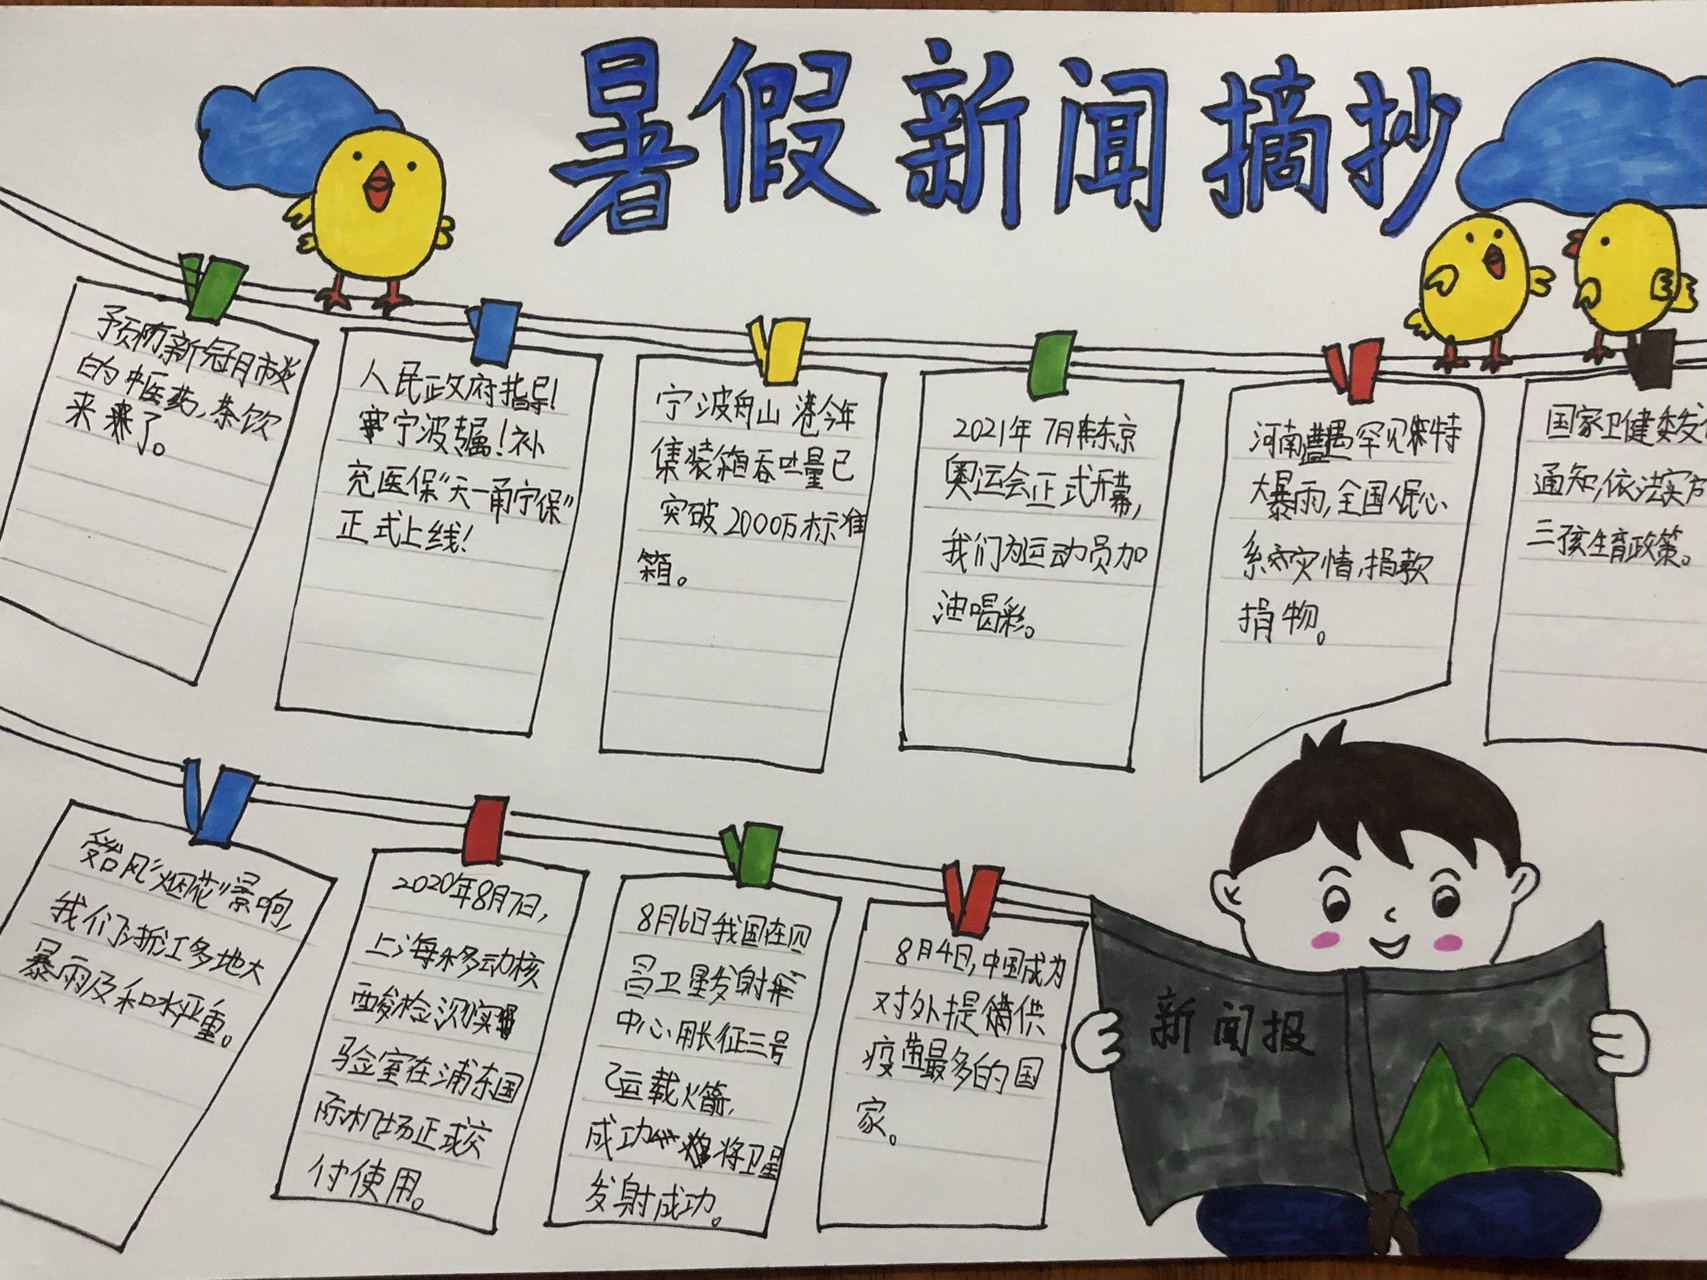 暑假新闻摘抄
预防新冠肺炎
的中医药,茶饮
来了。
人民政府指导!
宁波专属!补
充医保“天一甬宁保”
正式上线!
宁波舟山港今年
集装箱吞吐量已
突破2000万标准
箱。
2021年7月东京
奥运会正式开幕,
我们为运动员加
油喝彩。
河南遭遇罕见特
大暴雨,全国人民心
系灾情,捐款
捐物。
国家卫健委发
通知,依法实
三孩生育政策。
受台风“烟花”影响,
我们浙江多地大
暴雨及和水严重。
2020年8月7日,
上海移动核
酸检测实
验室在浦东国
际机场正式交
付使用。
8月6日我国在四
昌卫星发射
中心用长征三号
乙运载火箭,
成功将卫星
发射成功。
8月4日,中国成为
对外提供
疫苗最多的国
家。
新闻报